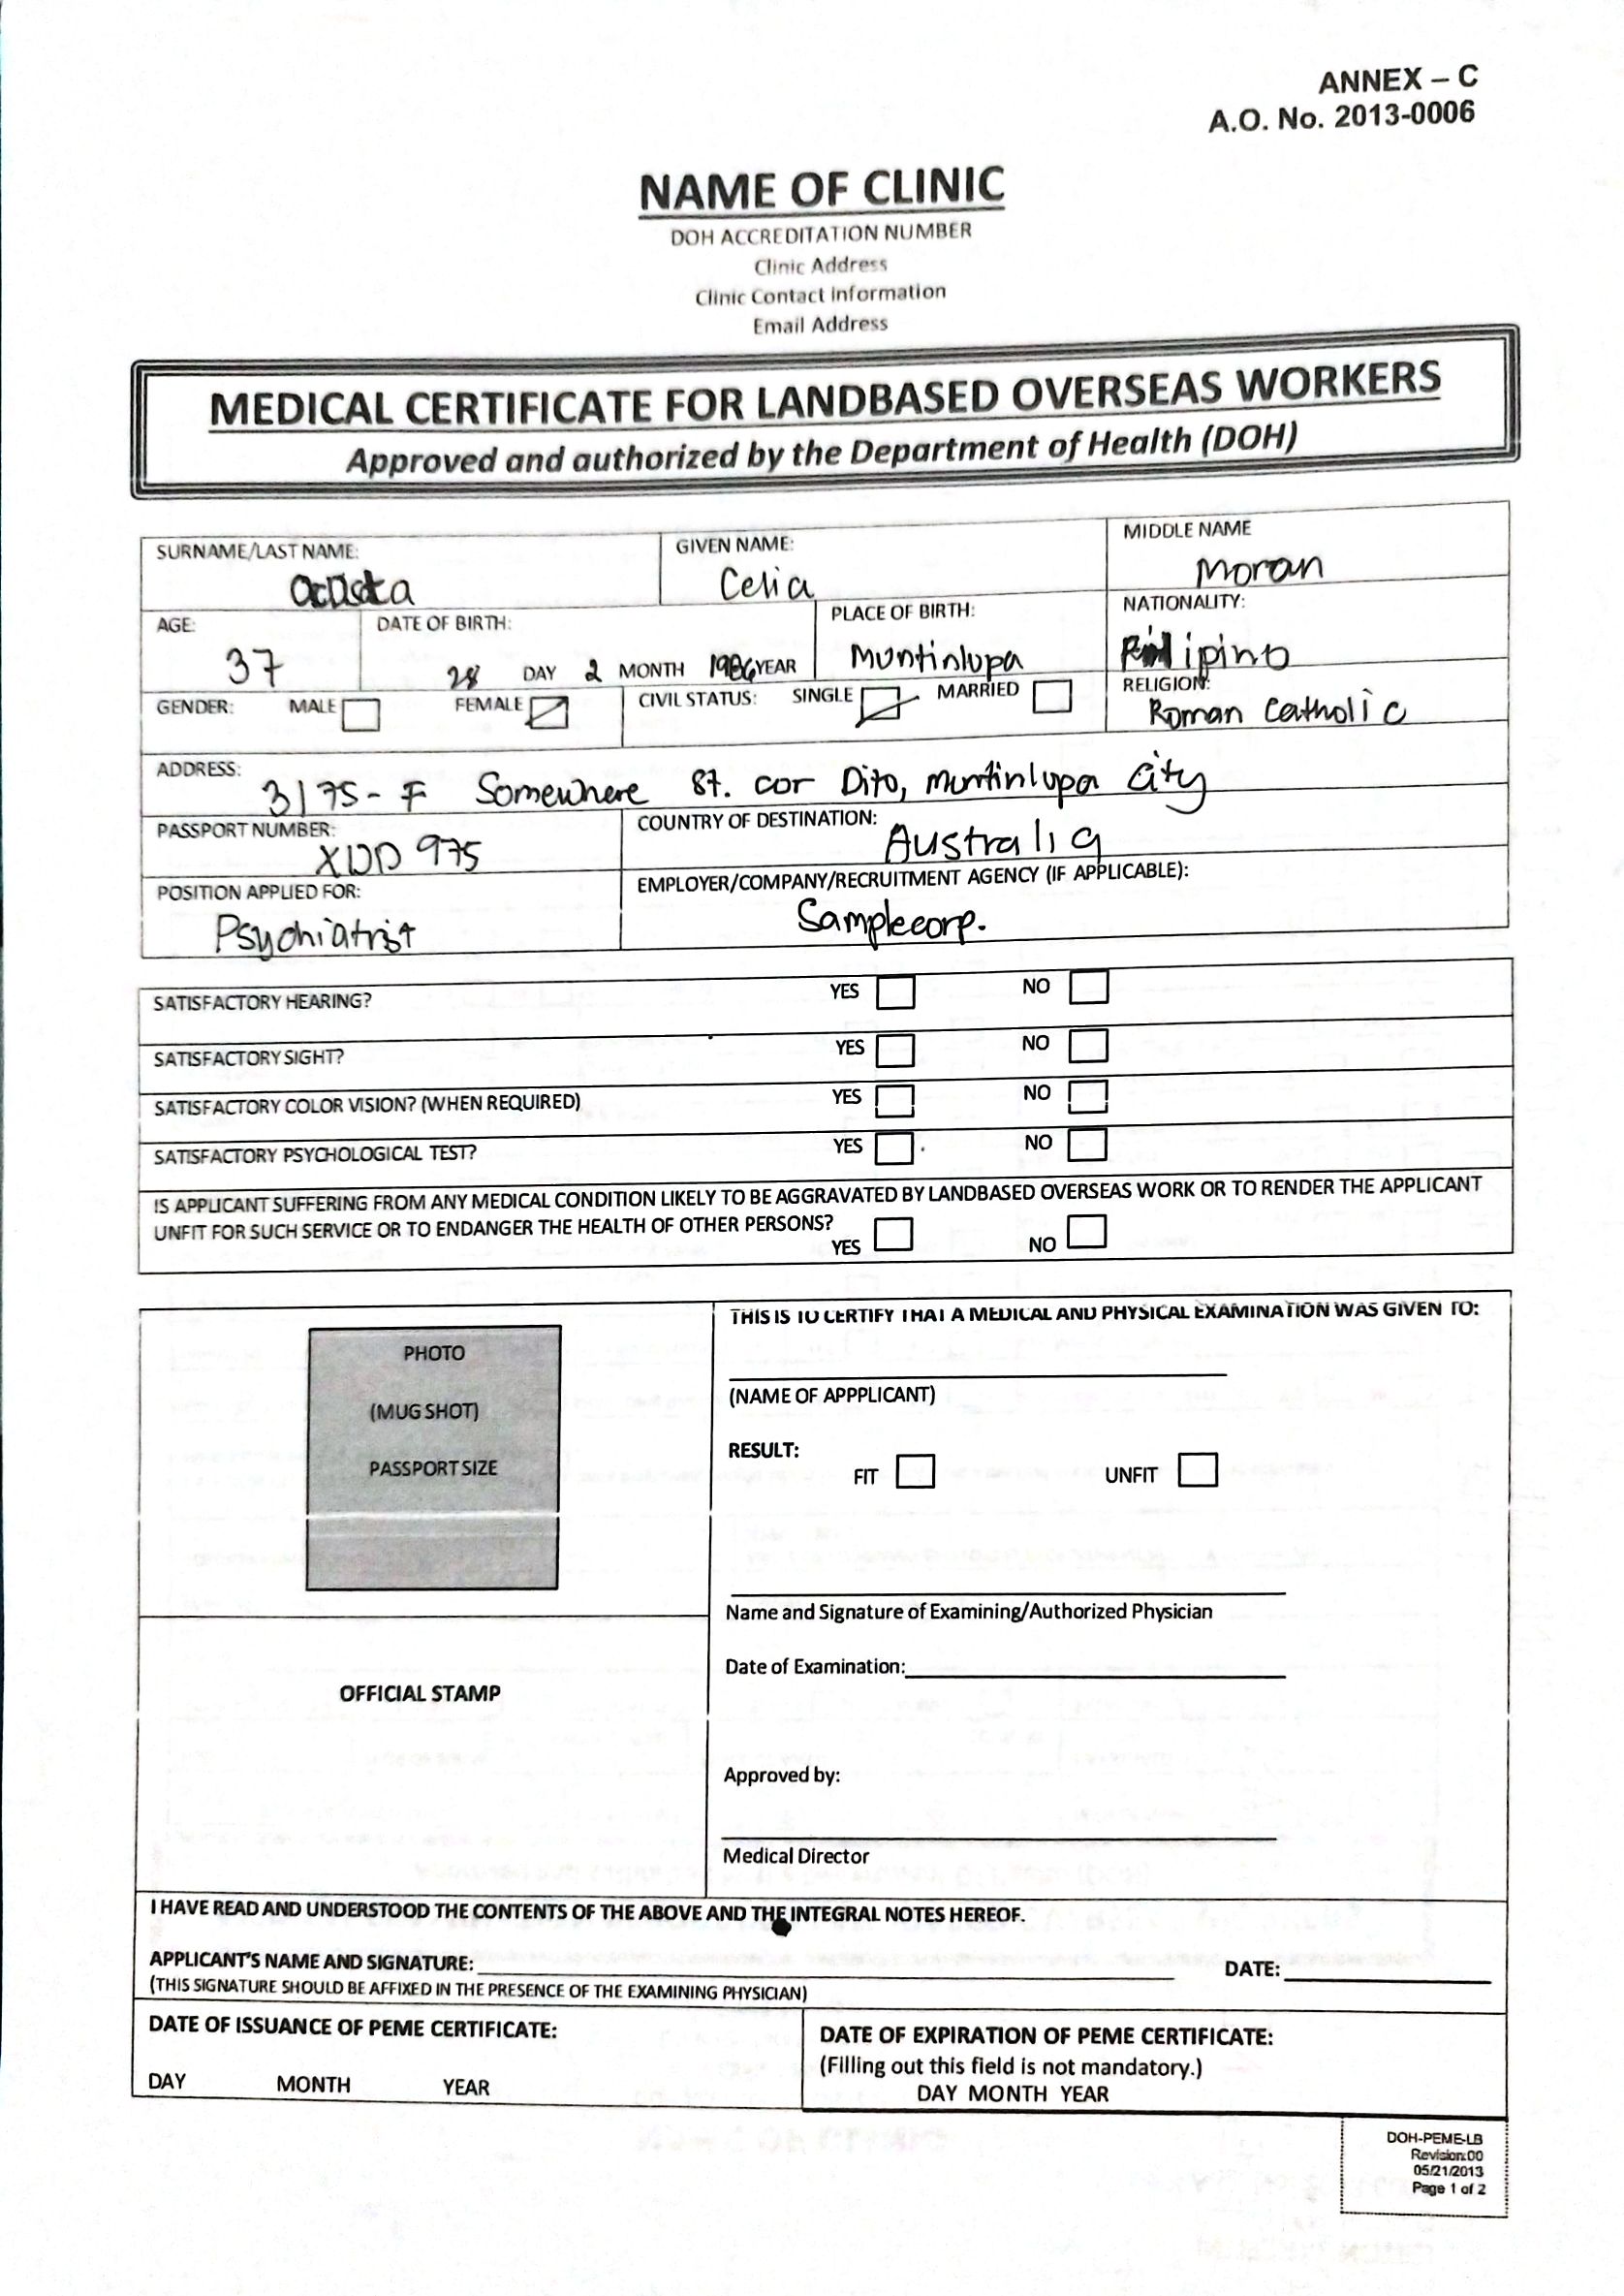 ANNEX – C
A.O. No. 2013-0006
NAME OF CLINIC
DOH ACCREDITATION NUMBER
Clinic Address
Clinic Contact Information
Email Address
MEDICAL CERTIFICATE FOR LANDBASED OVERSEAS WORKERS
Approved and authorized by the Department of Health (DOH)
SURNAME/LAST NAME: GIVEN NAME: Celia MIDDLE NAME Moran
AGE: 37 DATE OF BIRTH: 28 DAY 2 MONTH 1986 YEAR PLACE OF BIRTH: Muntinlupa NATIONALITY: Filipino
GENDER: MALE FEMALE CIVIL STATUS: SINGLE MARRIED RELIGION: Roman Catholic
ADDRESS: 3175-F Somewhere St. cor Dito, Muntinlupa City
PASSPORT NUMBER: XDD 975 COUNTRY OF DESTINATION: Australia
POSITION APPLIED FOR: Psychiatrist EMPLOYER/COMPANY/RECRUITMENT AGENCY (IF APPLICABLE): Samplecorp.
SATISFACTORY HEARING? YES NO
SATISFACTORY SIGHT? YES NO
SATISFACTORY COLOR VISION? (WHEN REQUIRED) YES NO
SATISFACTORY PSYCHOLOGICAL TEST? YES NO
IS APPLICANT SUFFERING FROM ANY MEDICAL CONDITION LIKELY TO BE AGGRAVATED BY LANDBASED OVERSEAS WORK OR TO RENDER THE APPLICANT
UNFIT FOR SUCH SERVICE OR TO ENDANGER THE HEALTH OF OTHER PERSONS?
YES NO
PHOTO
(MUG SHOT)
PASSPORT SIZE
OFFICIAL STAMP
THIS IS TO CERTIFY THAT A MEDICAL AND PHYSICAL EXAMINATION WAS GIVEN TO:
(NAME OF APPPLICANT)
RESULT:
FIT UNFIT
Name and Signature of Examining/Authorized Physician
Date of Examination:
Approved by:
Medical Director
I HAVE READ AND UNDERSTOOD THE CONTENTS OF THE ABOVE AND THE INTEGRAL NOTES HEREOF.
APPLICANT'S NAME AND SIGNATURE: DATE:
(THIS SIGNATURE SHOULD BE AFFIXED IN THE PRESENCE OF THE EXAMINING PHYSICIAN)
DATE OF ISSUANCE OF PEME CERTIFICATE:
DAY MONTH YEAR
DATE OF EXPIRATION OF PEME CERTIFICATE:
(Filling out this field is not mandatory.)
DAY MONTH YEAR
DOH-PEME-LB
Revision:00
05/21/2013
Page 1 of 2